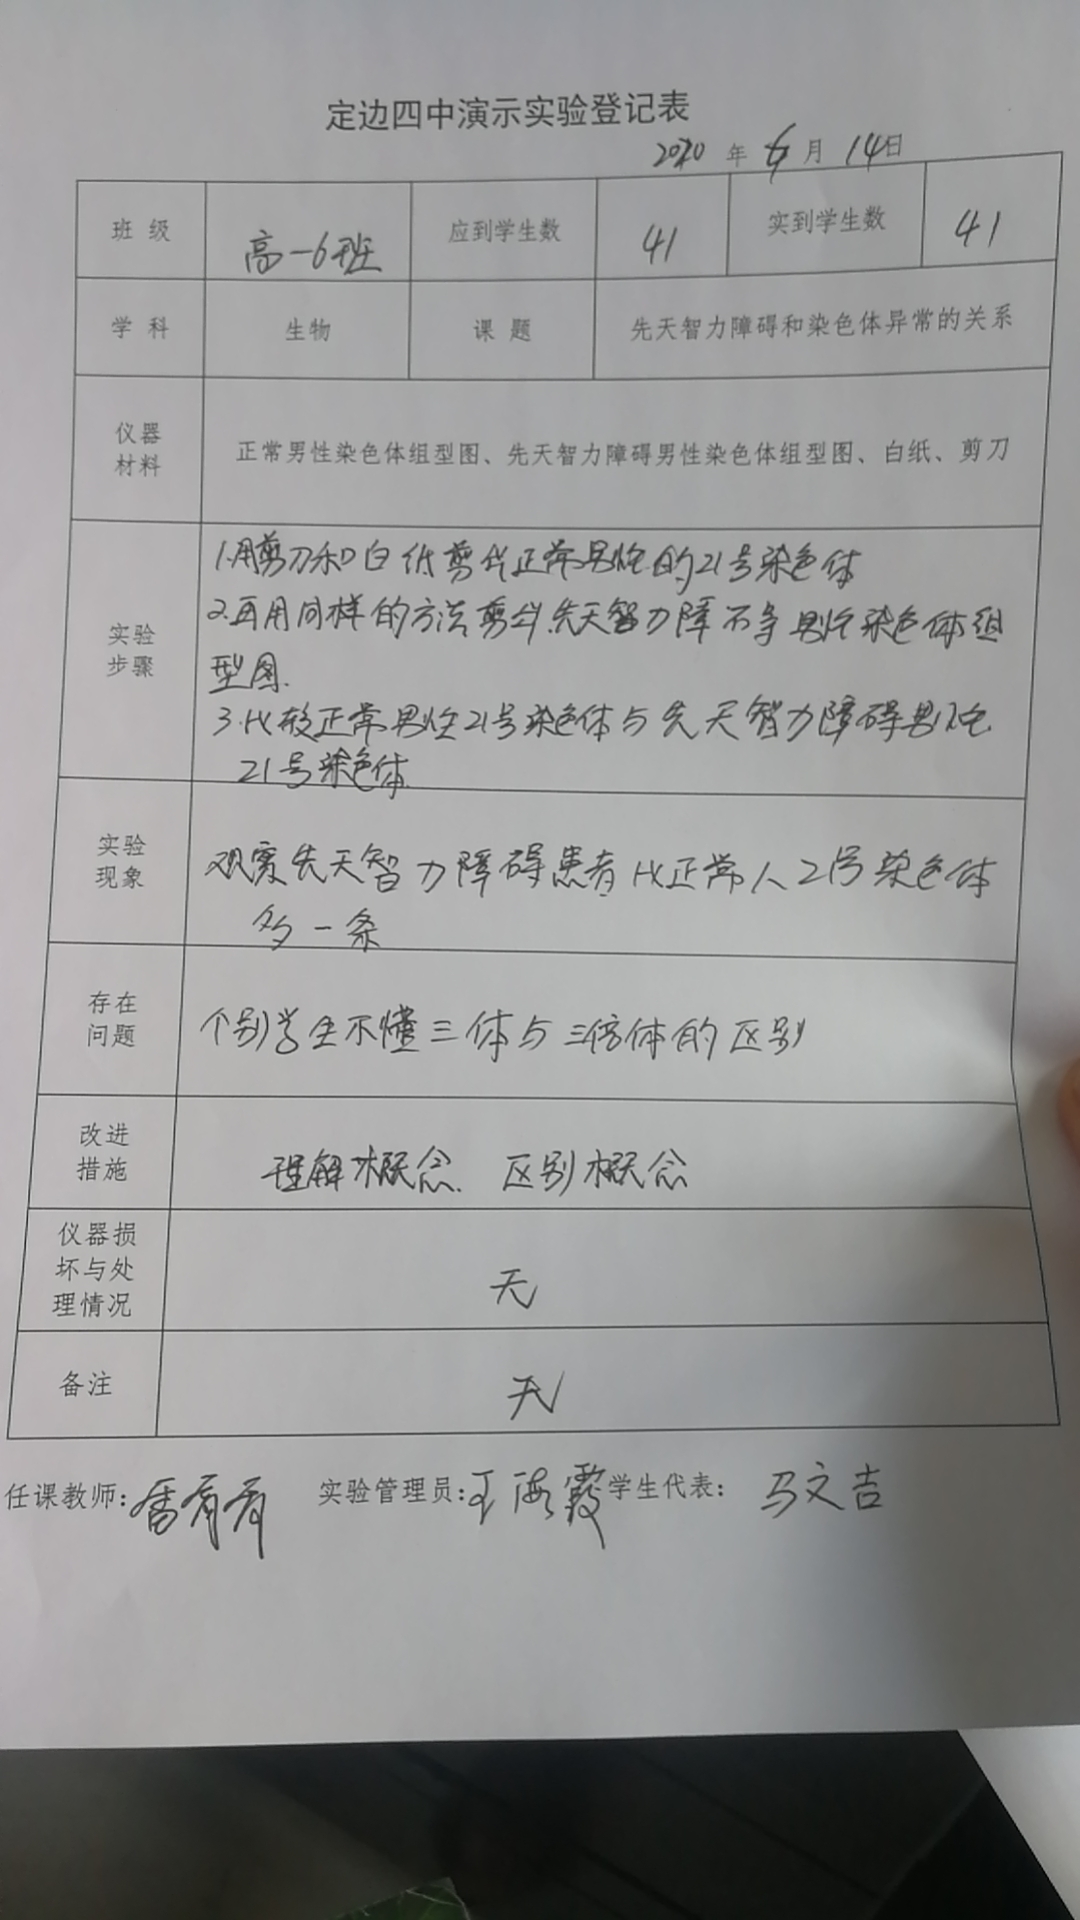 定边四中演示实验登记表
2020 年 6 月 14日
班 级 高一6班 应到学生数 41 实到学生数 41
学 科 生物 课 题 先天智力障碍和染色体异常的关系
仪器
材料
正常男性染色体组型图、先天智力障碍男性染色体组型图、白纸、剪刀
实验
步骤
1.用剪刀和白纸剪成正常男性的21号染色体
2.再用同样的方法剪出先天智力障 男性染色体组
型图.
3.比较正常男性21号染色体与先天智力障碍男性
21号染色体.
实验
现象
观察先天智力障碍患者比正常人21号染色体
多一条
存在
问题
个别学生不懂三体与三倍体的区别
改进
措施
理解概念. 区别概念
仪器损
坏与处
理情况
无
备注
无
任课教师: 实验管理员:王海霞 学生代表: 马文吉